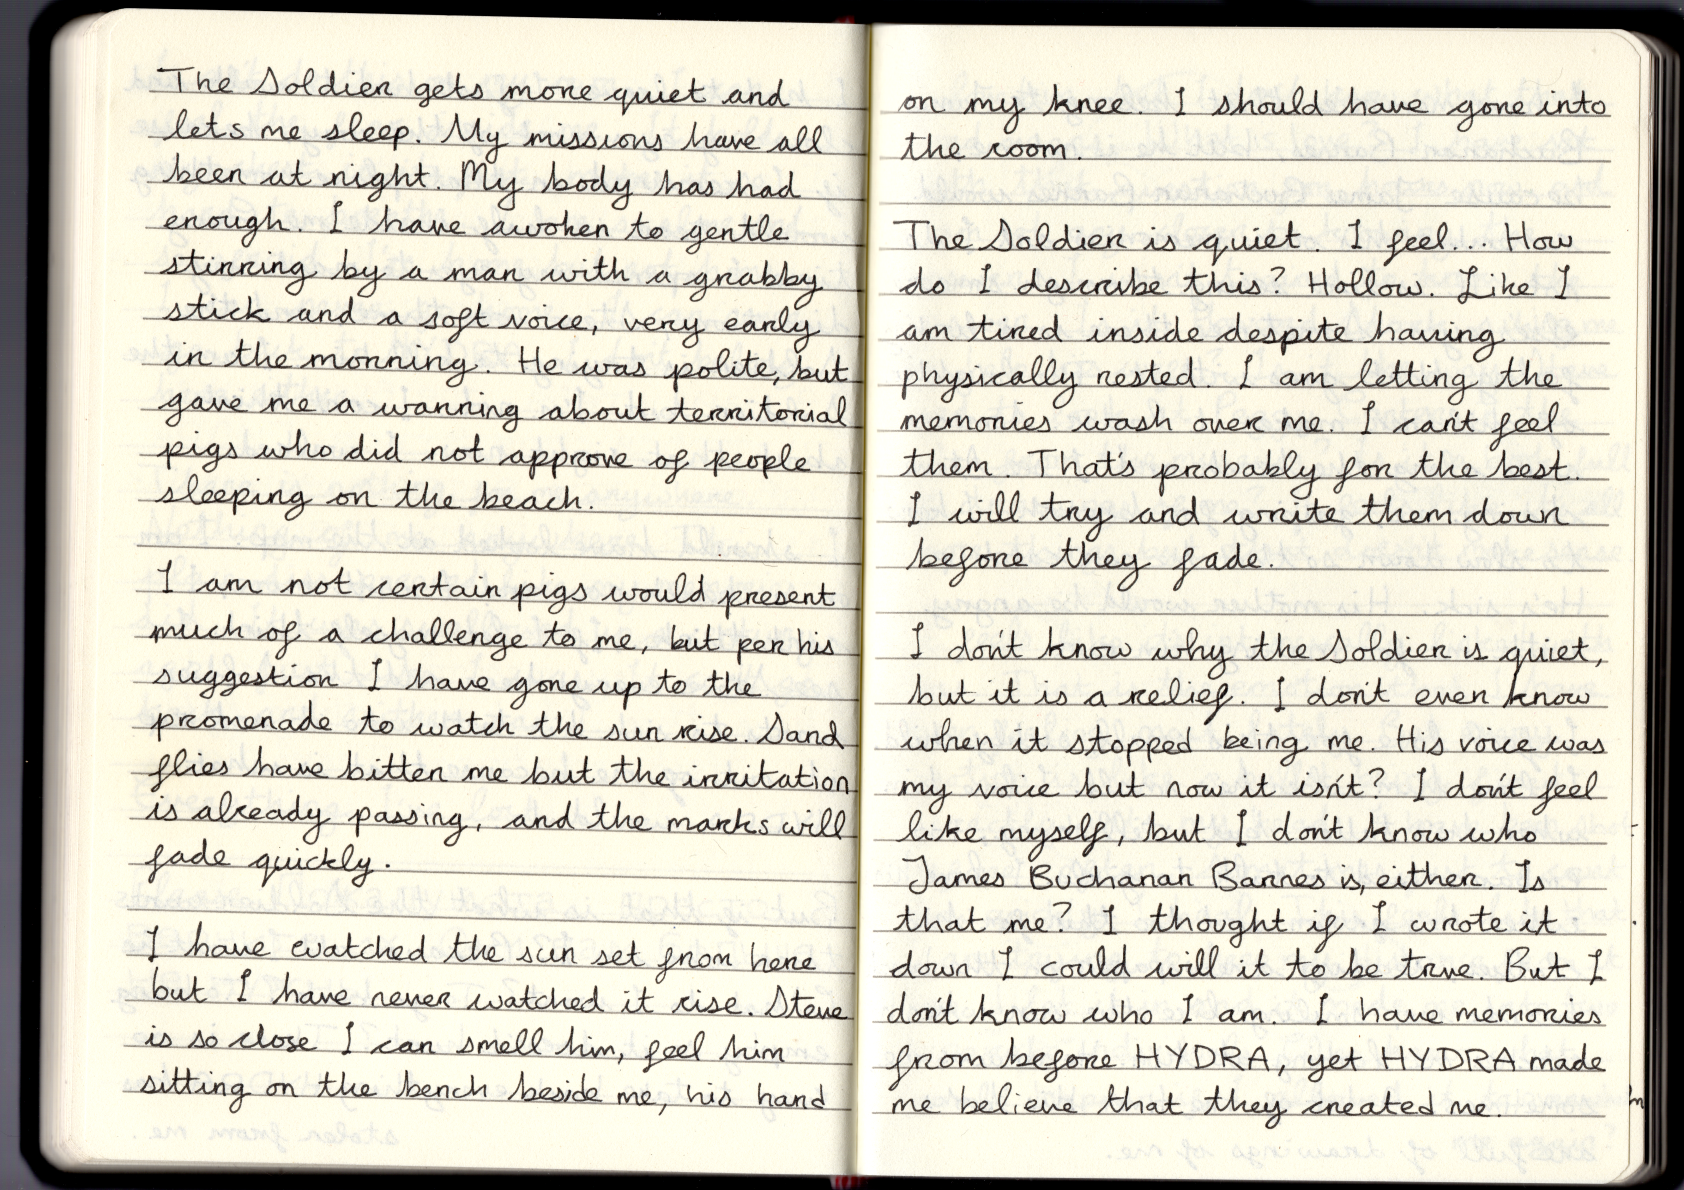 The Soldier gets more quiet and
lets me sleep. My missions have all
been at night. My body has had
enough. I have awoken to gentle
stirring by a man with a grabby
stick and a soft voice, very early
in the morning. He was polite, but
gave me a warning about territorial
pigs who did not approve of people
sleeping on the beach.
I am not certain pigs would present
much of a challenge to me, but per his
suggestion I have gone up to the
promenade to watch the sun rise. Sand
flies have bitten me but the irritation
is already passing, and the marks will
fade quickly.
I have watched the sun set from here
but I have never watched it rise. Steve
is so close I can smell him, feel him
sitting on the bench beside me, his hand
on my knee. I should have gone into
the room.
The Soldier is quiet. I feel... How
do I describe this? Hollow. Like I
am tired inside despite having
physically rested. I am letting the
memories wash over me. I can't feel
them. That's probably for the best.
I will try and write them down
before they fade.
I don't know why the Soldier is quiet,
but it is a relief. I don't even know
when it stopped being me. His voice was
my voice but now it isn't? I don't feel
like myself, but I don't know who
James Buchanan Barnes is, either. Is
that me? I thought if I wrote it
down I could will it to be true. But I
don't know who I am. I have memories
from before HYDRA, yet HYDRA made
me believe that they created me.